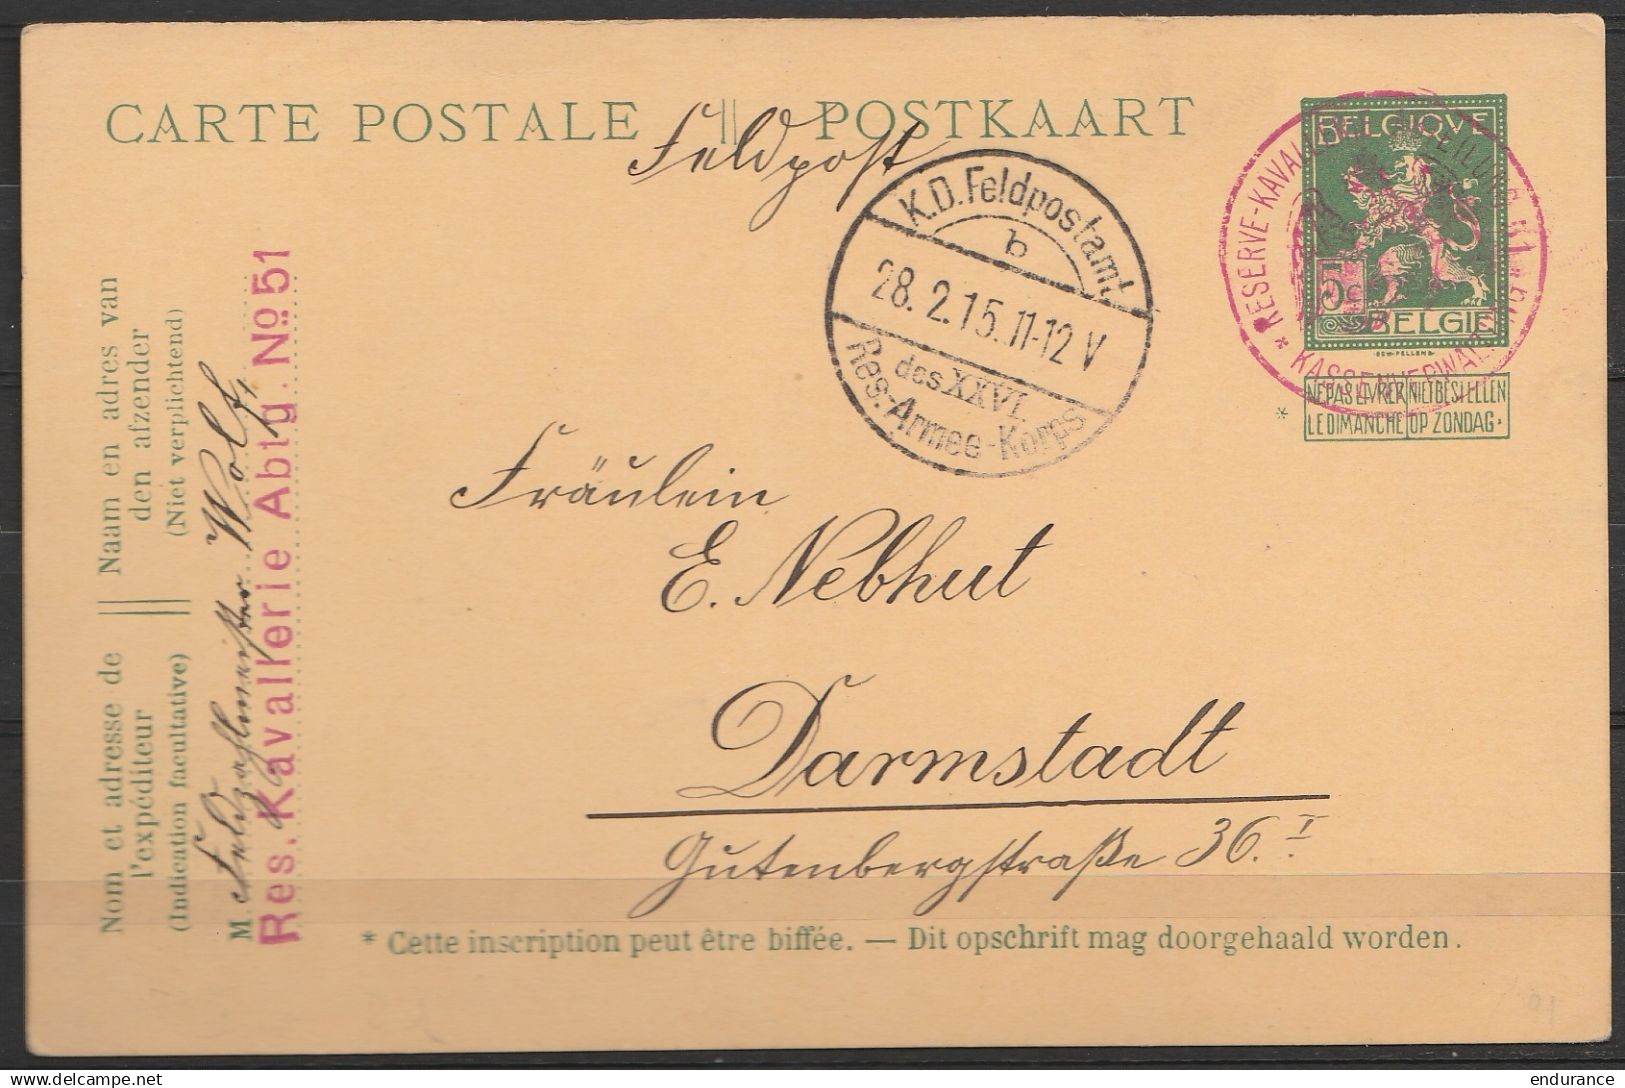 CARTE POSTALE || POSTKAART
Feldpost
K.D. Feldpostamt
b
28.2.15.11-12 V
des XXVI.
Res.-Armee-Korps
BELGIQVE
5c
BELGIE
NE PAS LIVRER NIET BESTELLEN
* LE DIMANCHE OP ZONDAG.
RESERVE-KAVAL
EILUNG 51
* KASSENVERWAL
Naam en adres van
den afzender
(Niet verplichtend)
Nom et adresse de
l'expéditeur
(Indication facultative)
M. Feldzahlmeister Wolf,
Res. Kavallerie Abtg. No 51
Fräulein
E. Nebhut
Darmstadt
Gutenbergstraße 36. I
* Cette inscription peut être biffée. — Dit opschrift mag doorgehaald worden.
the-collection-website.com
endurance